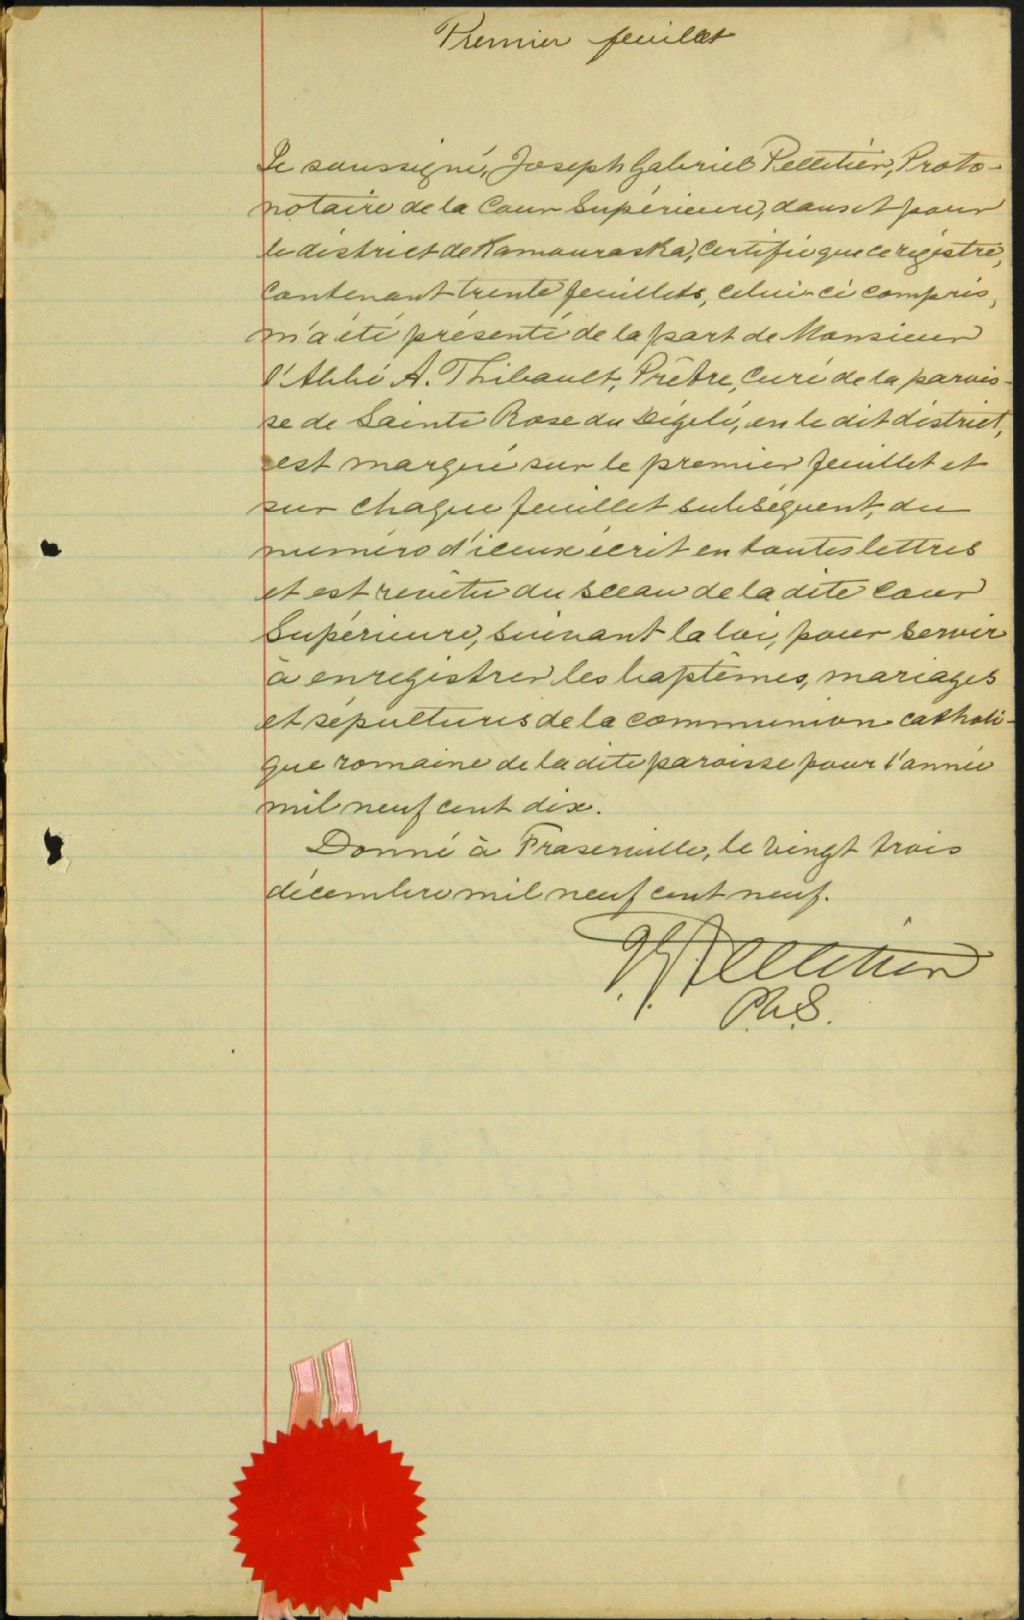 Premier feuillet
Je soussigné, Joseph Gabriel Pelletier, Proto-
notaire de la Cour Supérieure, dans et pour
le district de Kamouraska, certifie que ce régistre,
contenant trente feuillets, celui-ci compris,
m'a été présenté de la part de Monsieur
l'Abbé A. Thibault, Prêtre, Curé de la parois-
se de Sainte Rose du Dégelé, en le dit district,
est marqué sur le premier feuillet et
sur chaque feuillet subséquent, du
numéro d'iceux écrit en toutes lettres
et est revêtu du sceau de la dite Cour
Supérieure, suivant la loi, pour servir
à enregistrer les baptêmes, mariages
et sépultures de la communion catholi-
que romaine de la dite paroisse pour l'année
mil neuf cent dix.
Donné à Fraserville, le vingt trois
décembre mil neuf cent neuf.
J. G. Pelletier
P.C.S.